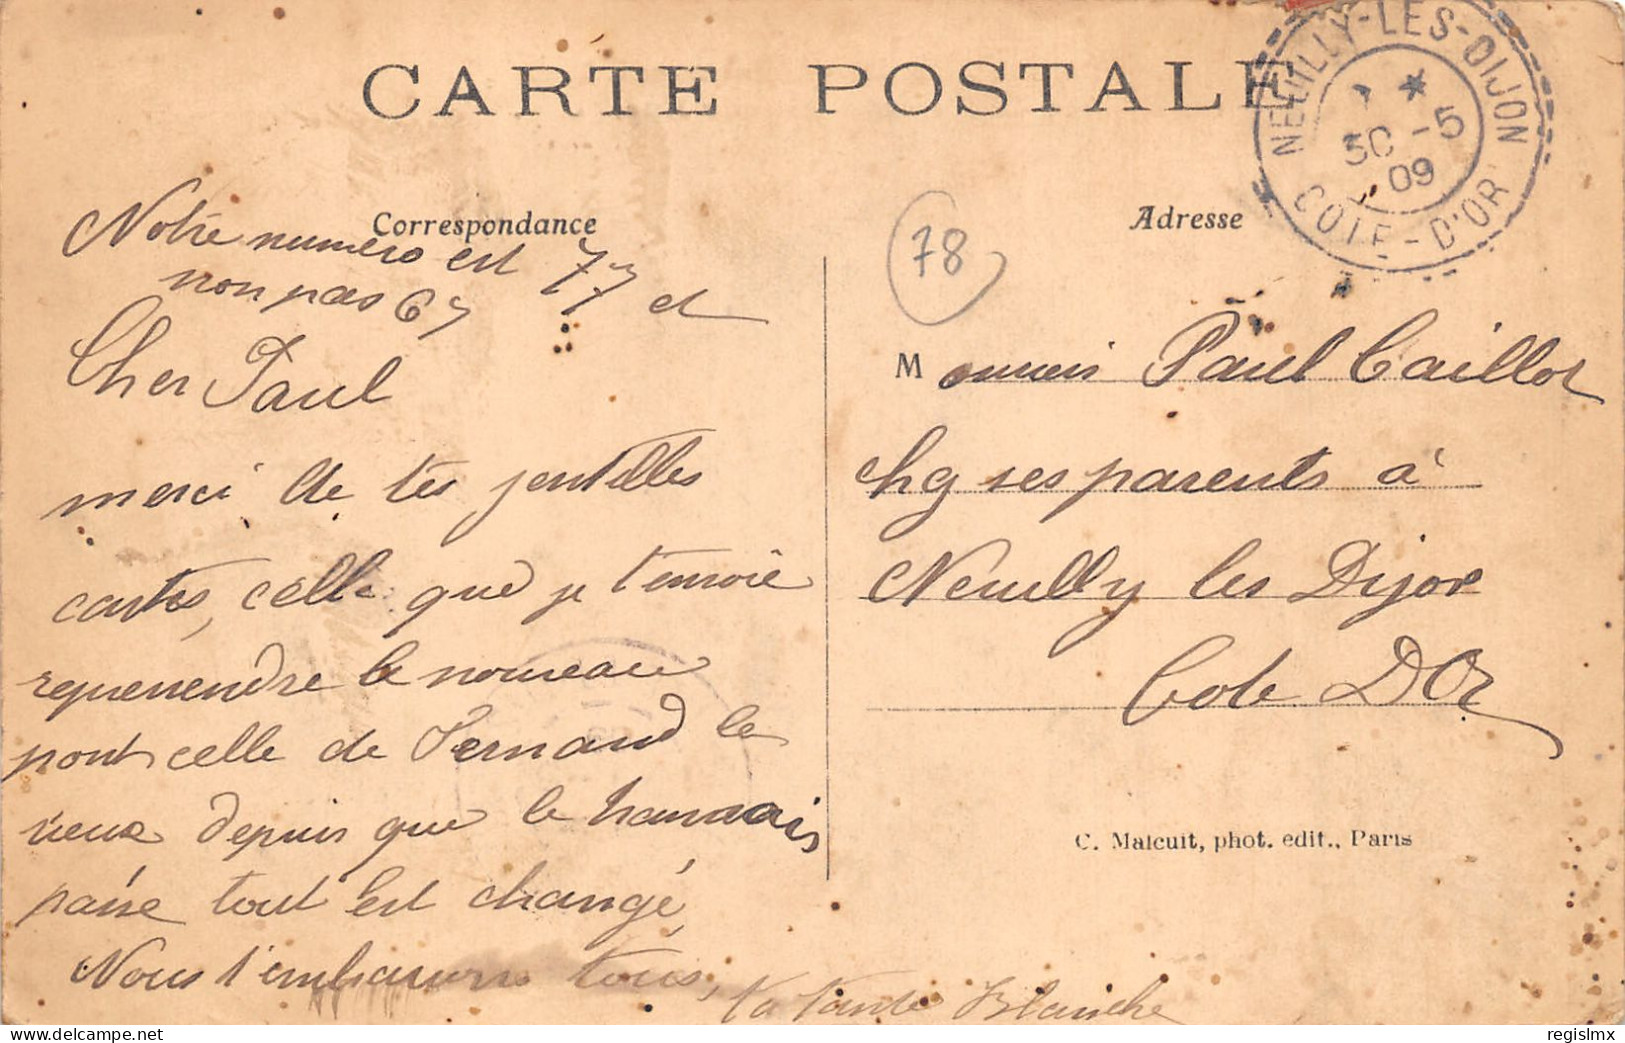 CARTE POSTALE
NEUILLY-LES-DIJON
30 -5
09
COTE-D'OR
Correspondance
Adresse
78
Notre numero est 77 et
non pas 67
Cher Paul
merci de tes jentilles
cartes, celle que je t'envoie
represendre le nouveau
pont celle de Fernand le
vieux depuis que le
passe tout est changé
Nous t'embrassons tous,
ta tante Blanche
Monsieur Paul Caillot
chg ses parents à
Neuilly les Dijon
Cote D'Or
C. Malcuit, phot. edit., Paris
regislmx